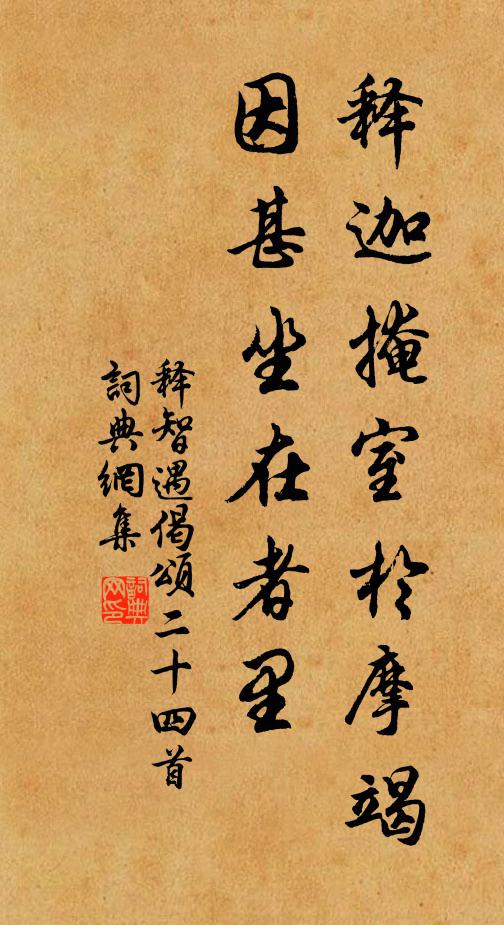 释迦掩室於摩竭
因甚坐在者里
释智遇偈頌二十四首
詞典網集
詞典
网印